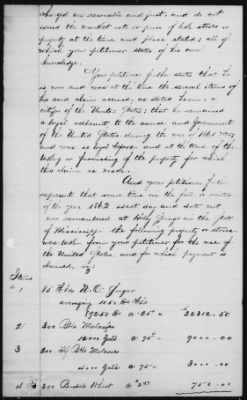 charged are reasonable and just, and do not
exceed the market rate or price of like stores or
property at the time and place stated; all of
which your petitioner states of his own
knowledge.
Your petitioner further states that he
is now and was at the time the several items of
his said claim accrued, as stated herein, a
citizen of the United States; that he remained
a loyal adherent to the cause and Government
of the United States during the war of
and was so loyal before and at the time of the
taking or furnishing of the property for which
this claim is made.
And your petitioner further
represents that some time in the fall or winter
of the year 1862 exact day and date not
now remembered at Holly Springs in the State
of Mississippi the following property or stores
was taken from your petitioner for the use of
the United States, and for which payment is
claimed, is:
Items
1 85 Hhds N.O. Sugar
averaging 1150 lbs
@ 25
2 300 Bbls Molasses
12000 Galls @ 75 9000.00
3 200 Hf Bbls Molasses
4000 Galls @ 75 3000.00
4 300 Bushels @ 2.50 750.00